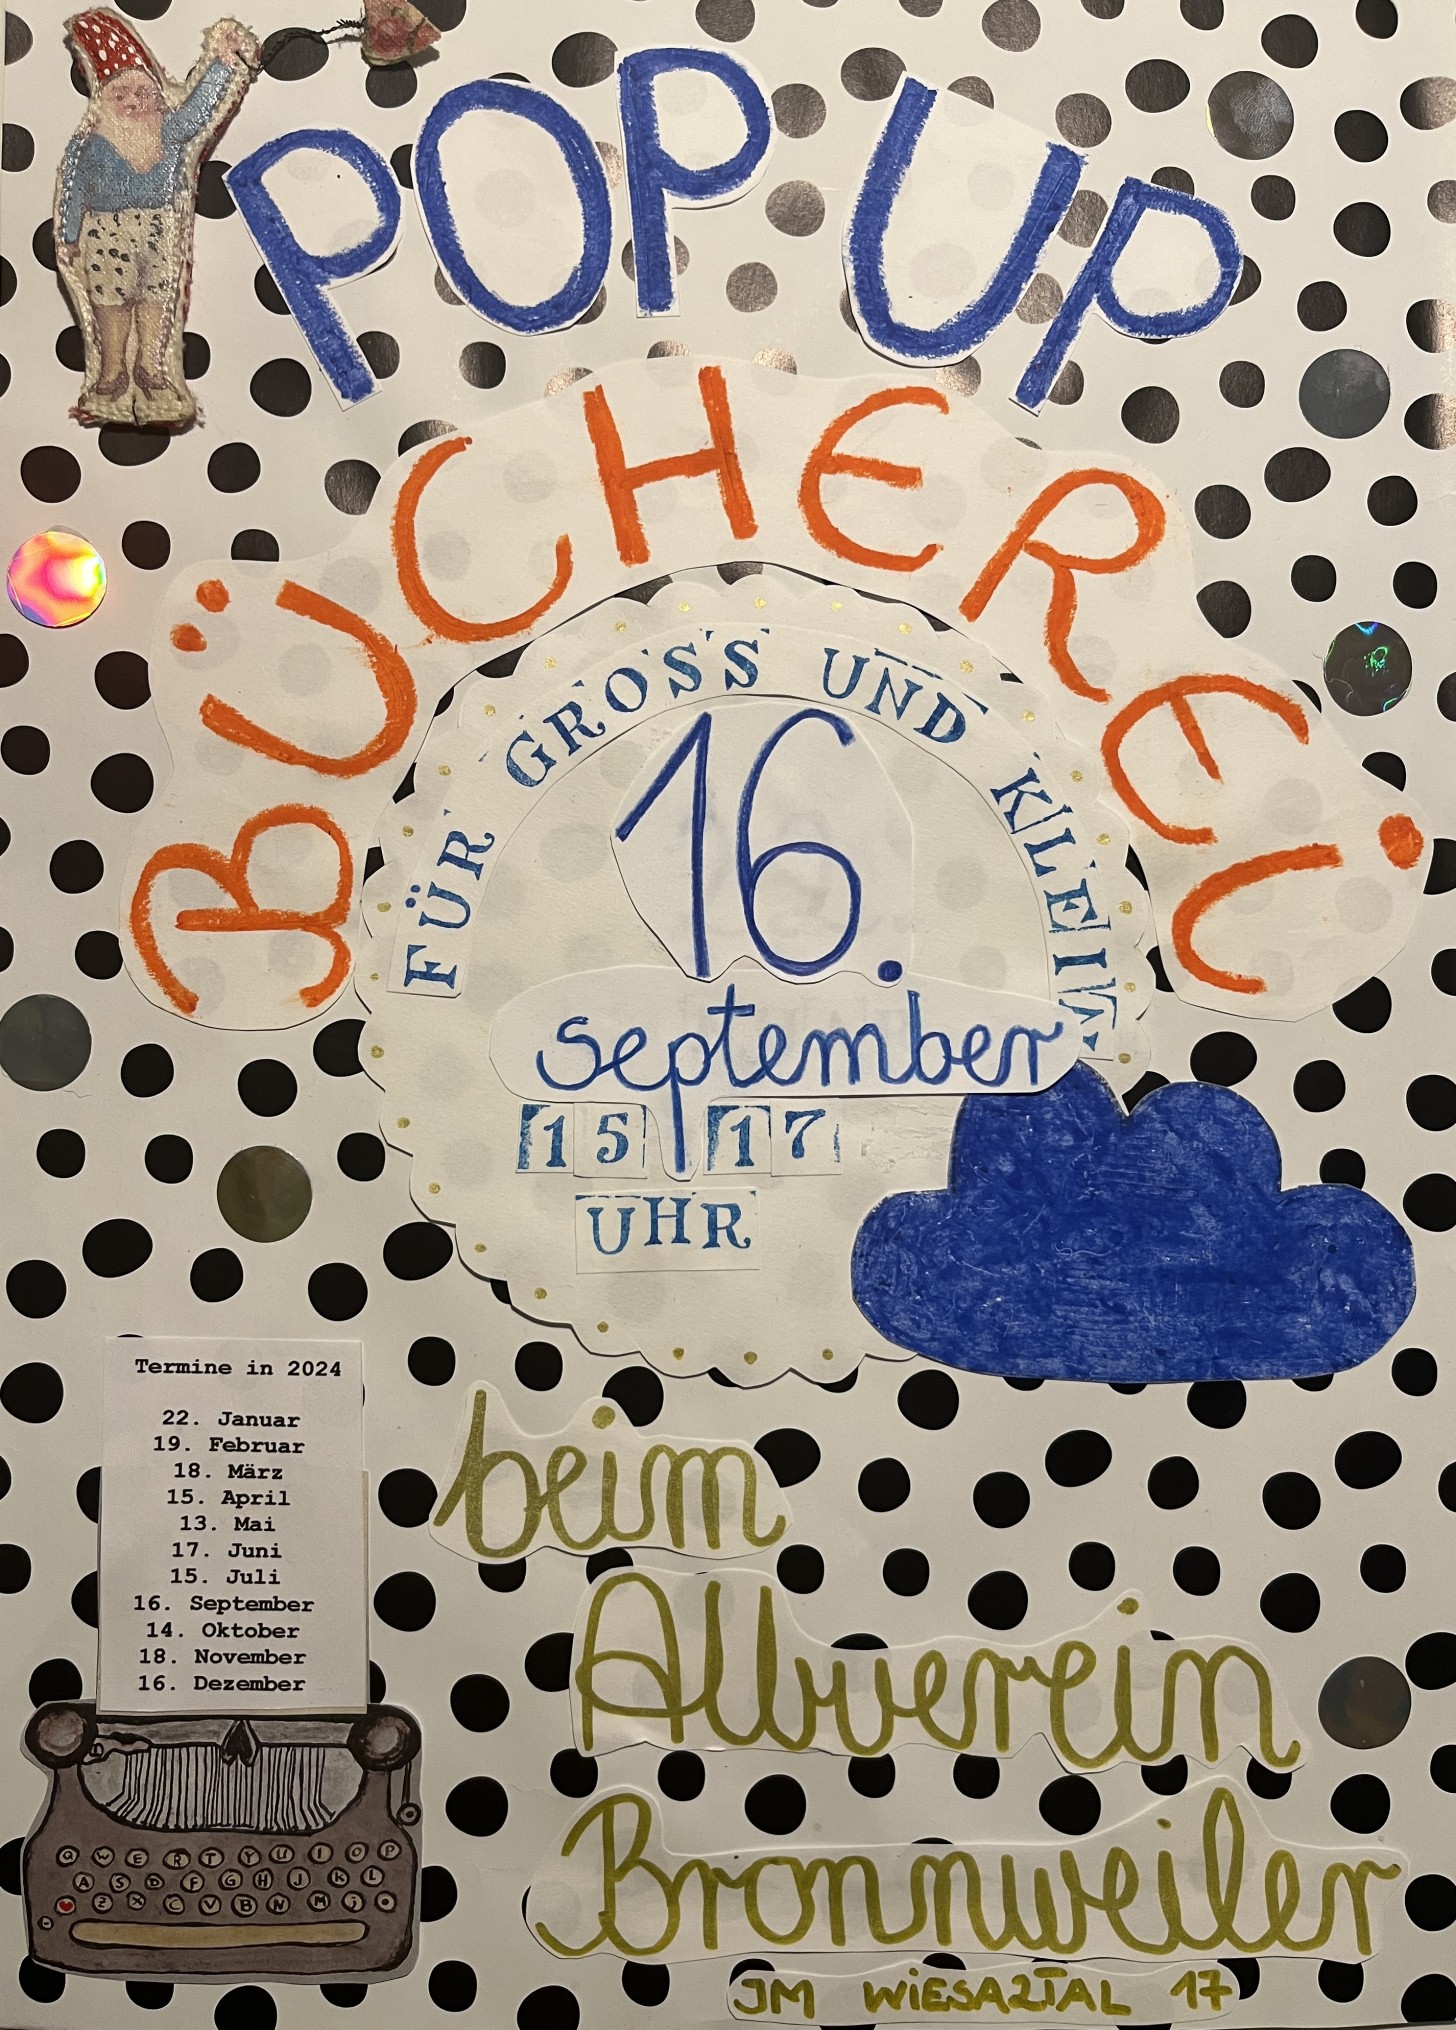 POP UP
BÜCHEREI
FÜR GROSS UND KLEIN
16.
September
15 17
UHR
Termine in 2024
22. Januar
19. Februar
18. März
15. April
13. Mai
17. Juni
15. Juli
16. September
14. Oktober
18. November
16. Dezember
beim
Albverein
Bronnweiler
IM WIESAZTAL 17
Q W E R T Y U I O P
A S D F G H J K L
Z X C V B N M